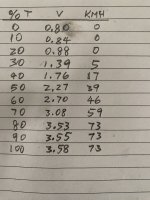 % T V KMH
0 0.80 0
10 0.84 0
20 0.88 0
30 1.39 5
40 1.76 17
50 2.27 39
60 2.70 46
70 3.08 59
80 3.53 73
90 3.55 73
100 3.58 73